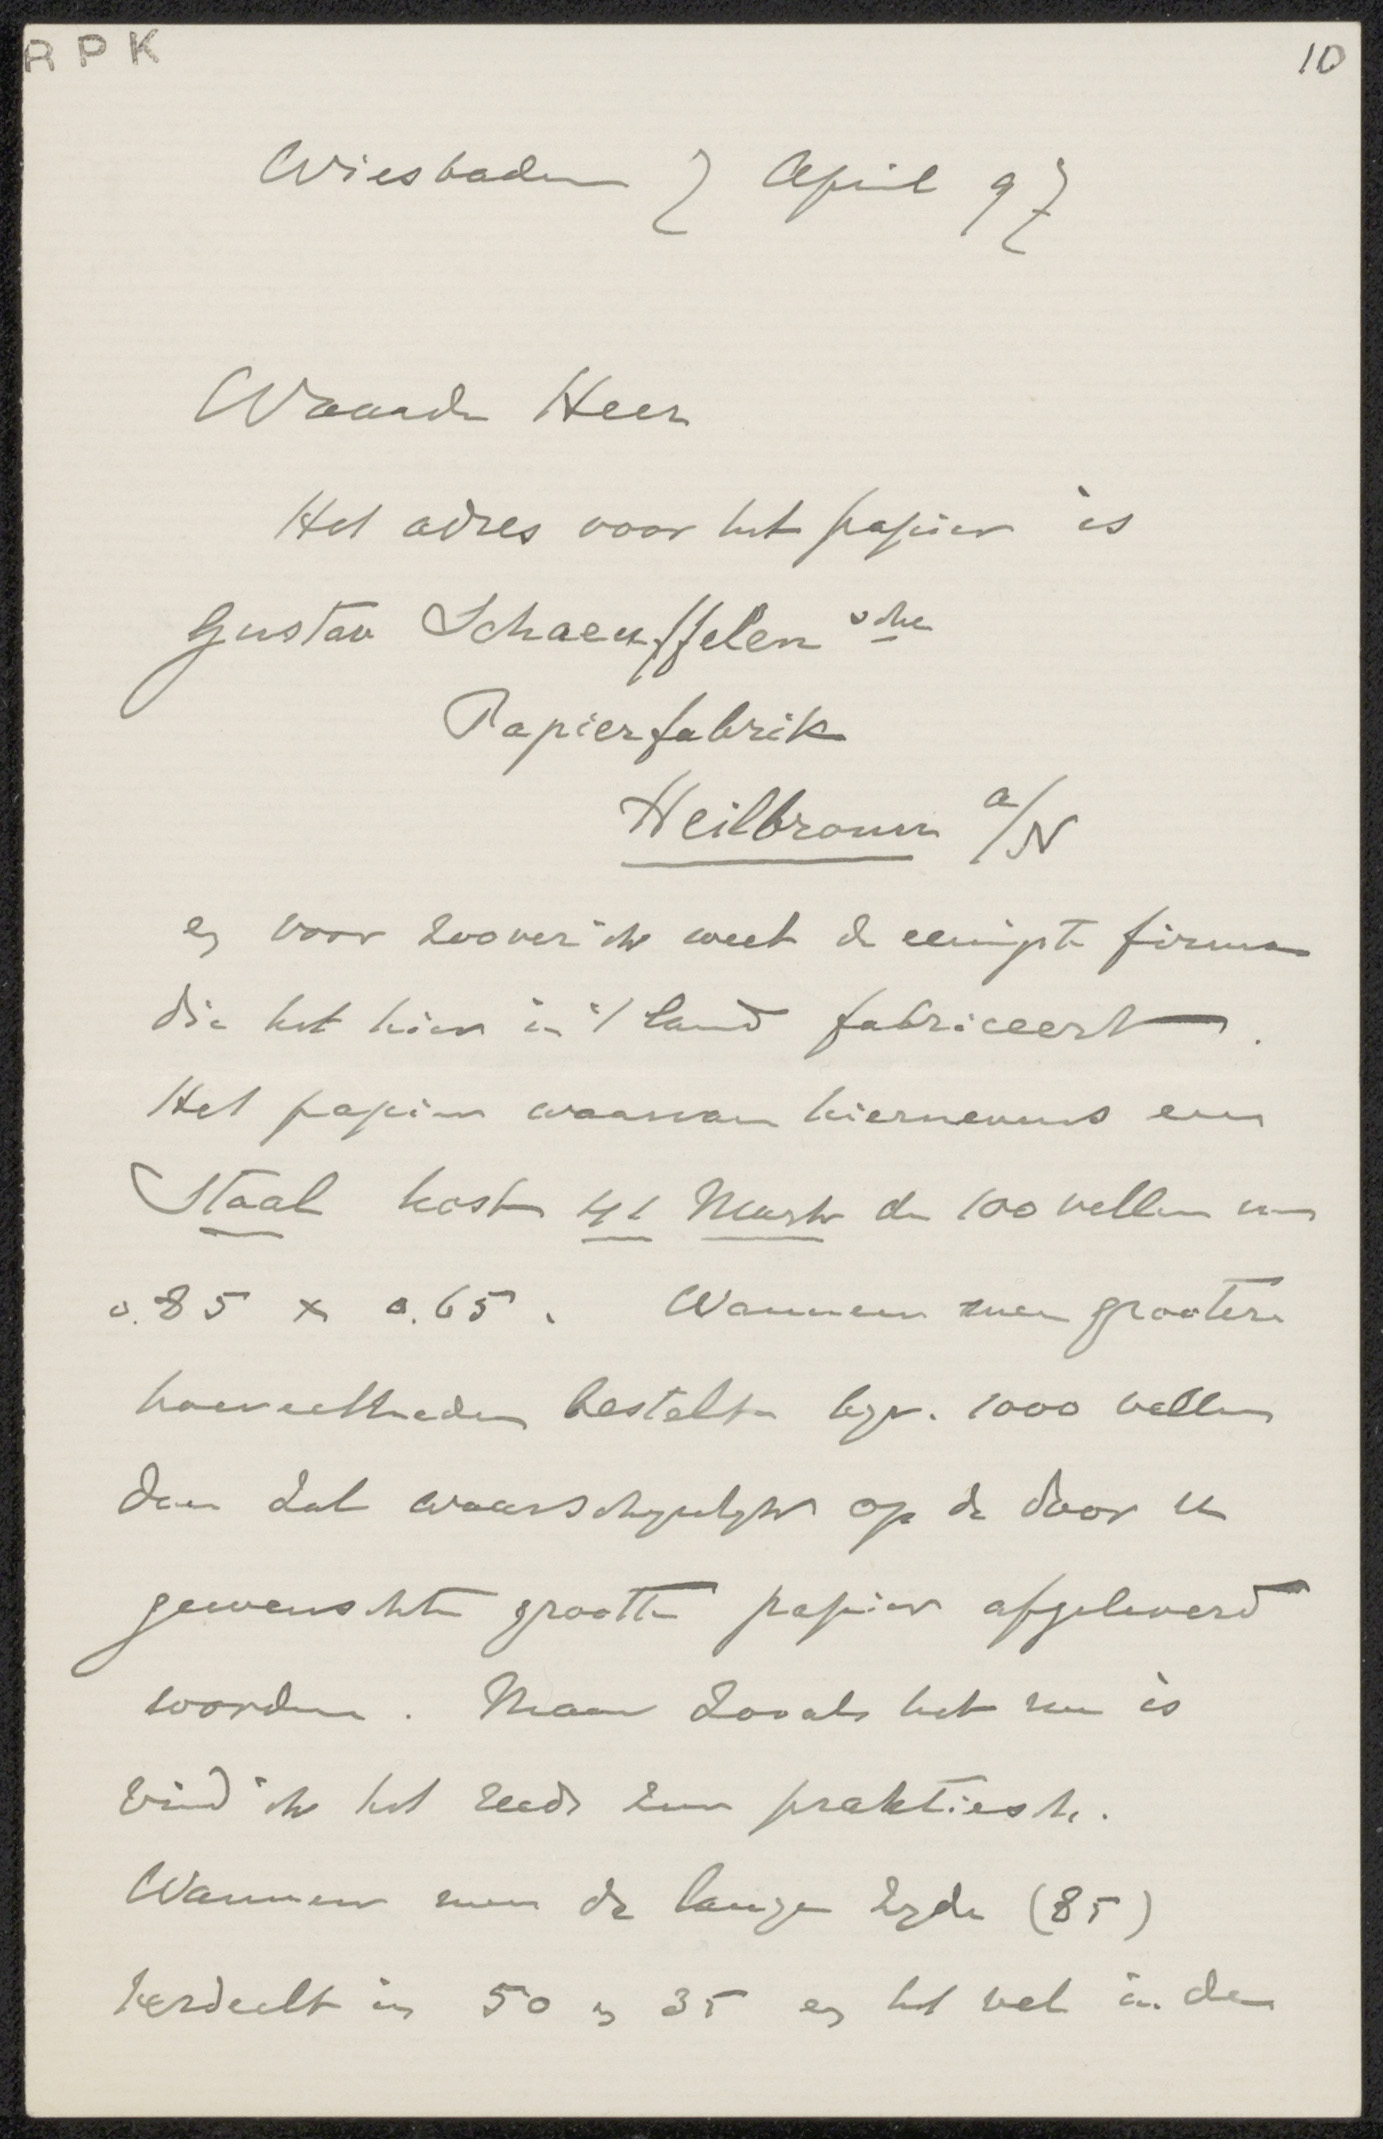 RPK
10
Wiesbaden 7 April 97
Waarde Heer
Het adres voor het papier is
Gustav Schaeuffelen sche
Papierfabrik
Heilbronn a/N
en voor zoover ik weet de eenigste firma
die het hier in 't land fabriceert.
Het papier waarvan hiernevens een
Staal kost 41 Mark de 100 vellen van
0.85 x 0.65. Wanneer men grootere
hoeveelheden bestelt bijv. 1000 vellen
dan zal waarschijnlijk op de door u
gewenschte grootte papier afgeleverd
worden. Maar zooals het nu is
vind ik het reeds zeer praktiesch.
Wanneer men de lange zijde (85)
verdeelt in 50 en 35 en het vel in de